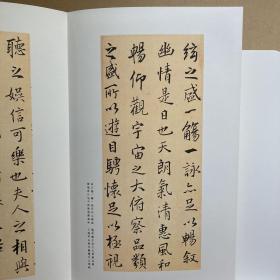 絃之盛一觴一詠亦足以暢敘
幽情是日也天朗氣清惠風和
暢仰觀宇宙之大俯察品類
之盛所以遊目騁懷足以極視
聽之娛信可樂也夫人之相與